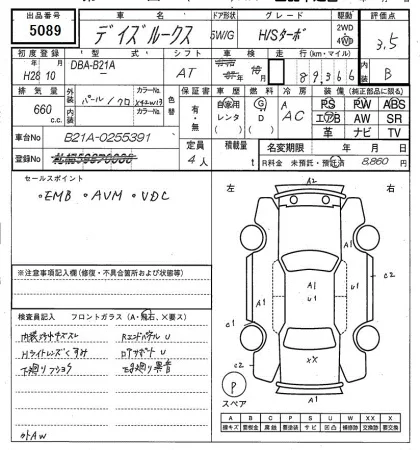 出品番号 車名 ドア形状 グレード 駆動 評価点
5089 デイズルークス 5W/G H/Sターボ 2WD 4WD 3.5
初度登録 型式 シフト 車検 走行(km・マイル) 内装
H28 10 DBA-B21A AT 89366 B
排気量 外装 カラーNo. 色替 保証書 車歴 燃料 冷房 装備(純正部品に限る)
660 c.c. パール/クロ 有・無 自家用 レンタ G D A AC PS PW ABS
内装 カラーNo. エアB AW SR
車台No B21A-0255391 革 ナビ TV
登録No 定員 4人 積載量 t 名変期限 年 月 日
R料金 未預託・預託済 8,860円
セールスポイント
・EMB ・AVM ・VDC
左 右
A2
A1
A1 U1 U1 C2
A1
C1 XX
C2
C2
A2
※注意事項記入欄(修復・不具合箇所および状態等)
検査員記入 フロントガラス(A・飛石、×要ス)
内装コゲキズスレ Rエンドパネル U
Hライトレンズくすみ ロアサポート U
下廻りフショク 下廻り異音
外AW
P
スペア
A B C P S U W X XX
線キズ 要板金 腐蝕 要塗装 サビ 凹凸 補修跡 交換跡 要交換